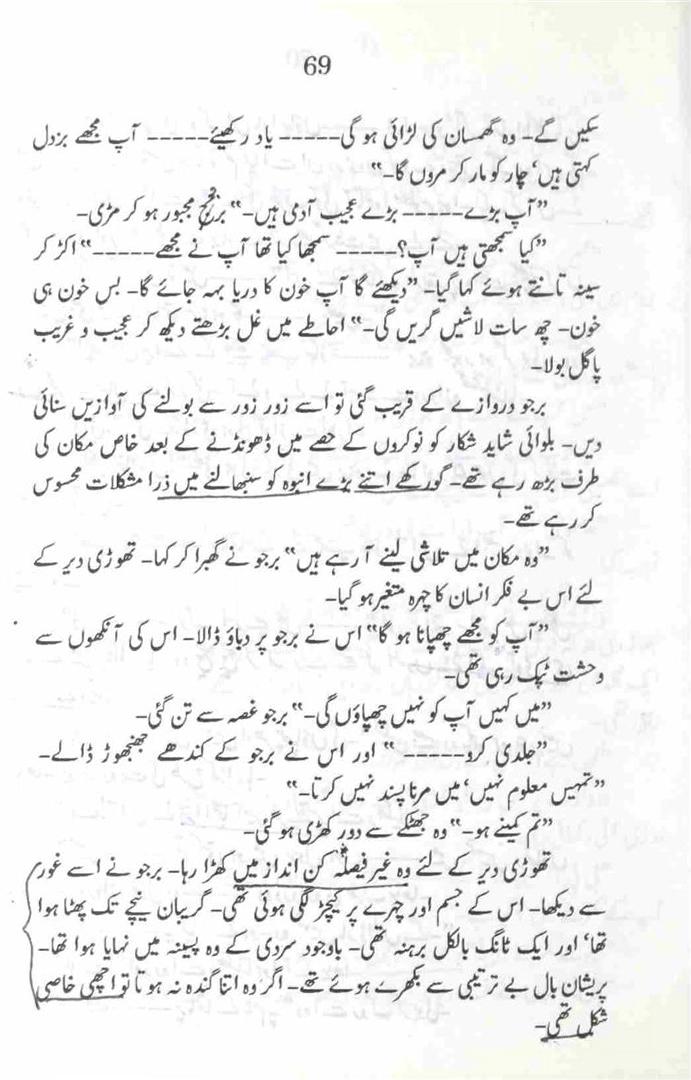 69
سکیں گے۔ وہ گھمسان کی لڑائی ہو گی----- یاد رکھیئے----- آپ مجھے بزدل
کہتی ہیں‘ چار کو مار کر مروں گا۔“
”آپ بڑے----- بڑے عجیب آدمی ہیں۔“ برجو مجبور ہو کر مڑی۔
”کیا سمجھتی ہیں آپ؟----- سمجھا کیا تھا آپ نے مجھے-----“ اکڑ کر
سینہ تانتے ہوئے کہا گیا۔ ”دیکھئے گا آپ خون کا دریا بہہ جائے گا۔ بس خون ہی
خون۔ چھ سات لاشیں گریں گی۔“ احاطے میں غل بڑھتے دیکھ کر عجیب و غریب
پاگل بولا۔
برجو دروازے کے قریب گئی تو اسے زور زور سے بولنے کی آوازیں سنائی
دیں۔ بلوائی شاید شکار کو نوکروں کے حصے میں ڈھونڈنے کے بعد خاص مکان کی
طرف بڑھ رہے تھے۔ گورکھے اتنے بڑے انبوہ کو سنبھالنے میں ذرا مشکلات محسوس
کر رہے تھے۔
”وہ مکان میں تلاشی لینے آ رہے ہیں“ برجو نے گھبرا کر کہا۔ تھوڑی دیر کے
لئے اس بے فکر انسان کا چہرہ متغیر ہو گیا۔
”آپ کو مجھے چھپانا ہو گا“ اس نے برجو پر دباؤ ڈالا۔ اس کی آنکھوں سے
وحشت ٹپک رہی تھی۔
”میں کہیں آپ کو نہیں چھپاؤں گی۔“ برجو غصہ سے تن گئی۔
”جلدی کرو-----“ اور اس نے برجو کے کندھے جھنجھوڑ ڈالے۔
”تمہیں معلوم نہیں‘ میں مرنا پسند نہیں کرتا۔“
”تم کمینے ہو۔“ وہ جھٹکے سے دور کھڑی ہو گئی۔
تھوڑی دیر کے لئے وہ غیر فیصلہ کن انداز میں کھڑا رہا۔ برجو نے اسے غور
سے دیکھا۔ اس کے جسم اور چہرے پر کیچڑ لگی ہوئی تھی۔ گریبان نیچے تک پھٹا ہوا
تھا‘ اور ایک ٹانگ بالکل برہنہ تھی۔ باوجود سردی کے وہ پسینہ میں نہایا ہوا تھا۔
پریشان بال بے ترتیبی سے بکھرے ہوئے تھے۔ اگر وہ اتنا گندہ نہ ہوتا تو اچھی خاصی
شکل تھی۔